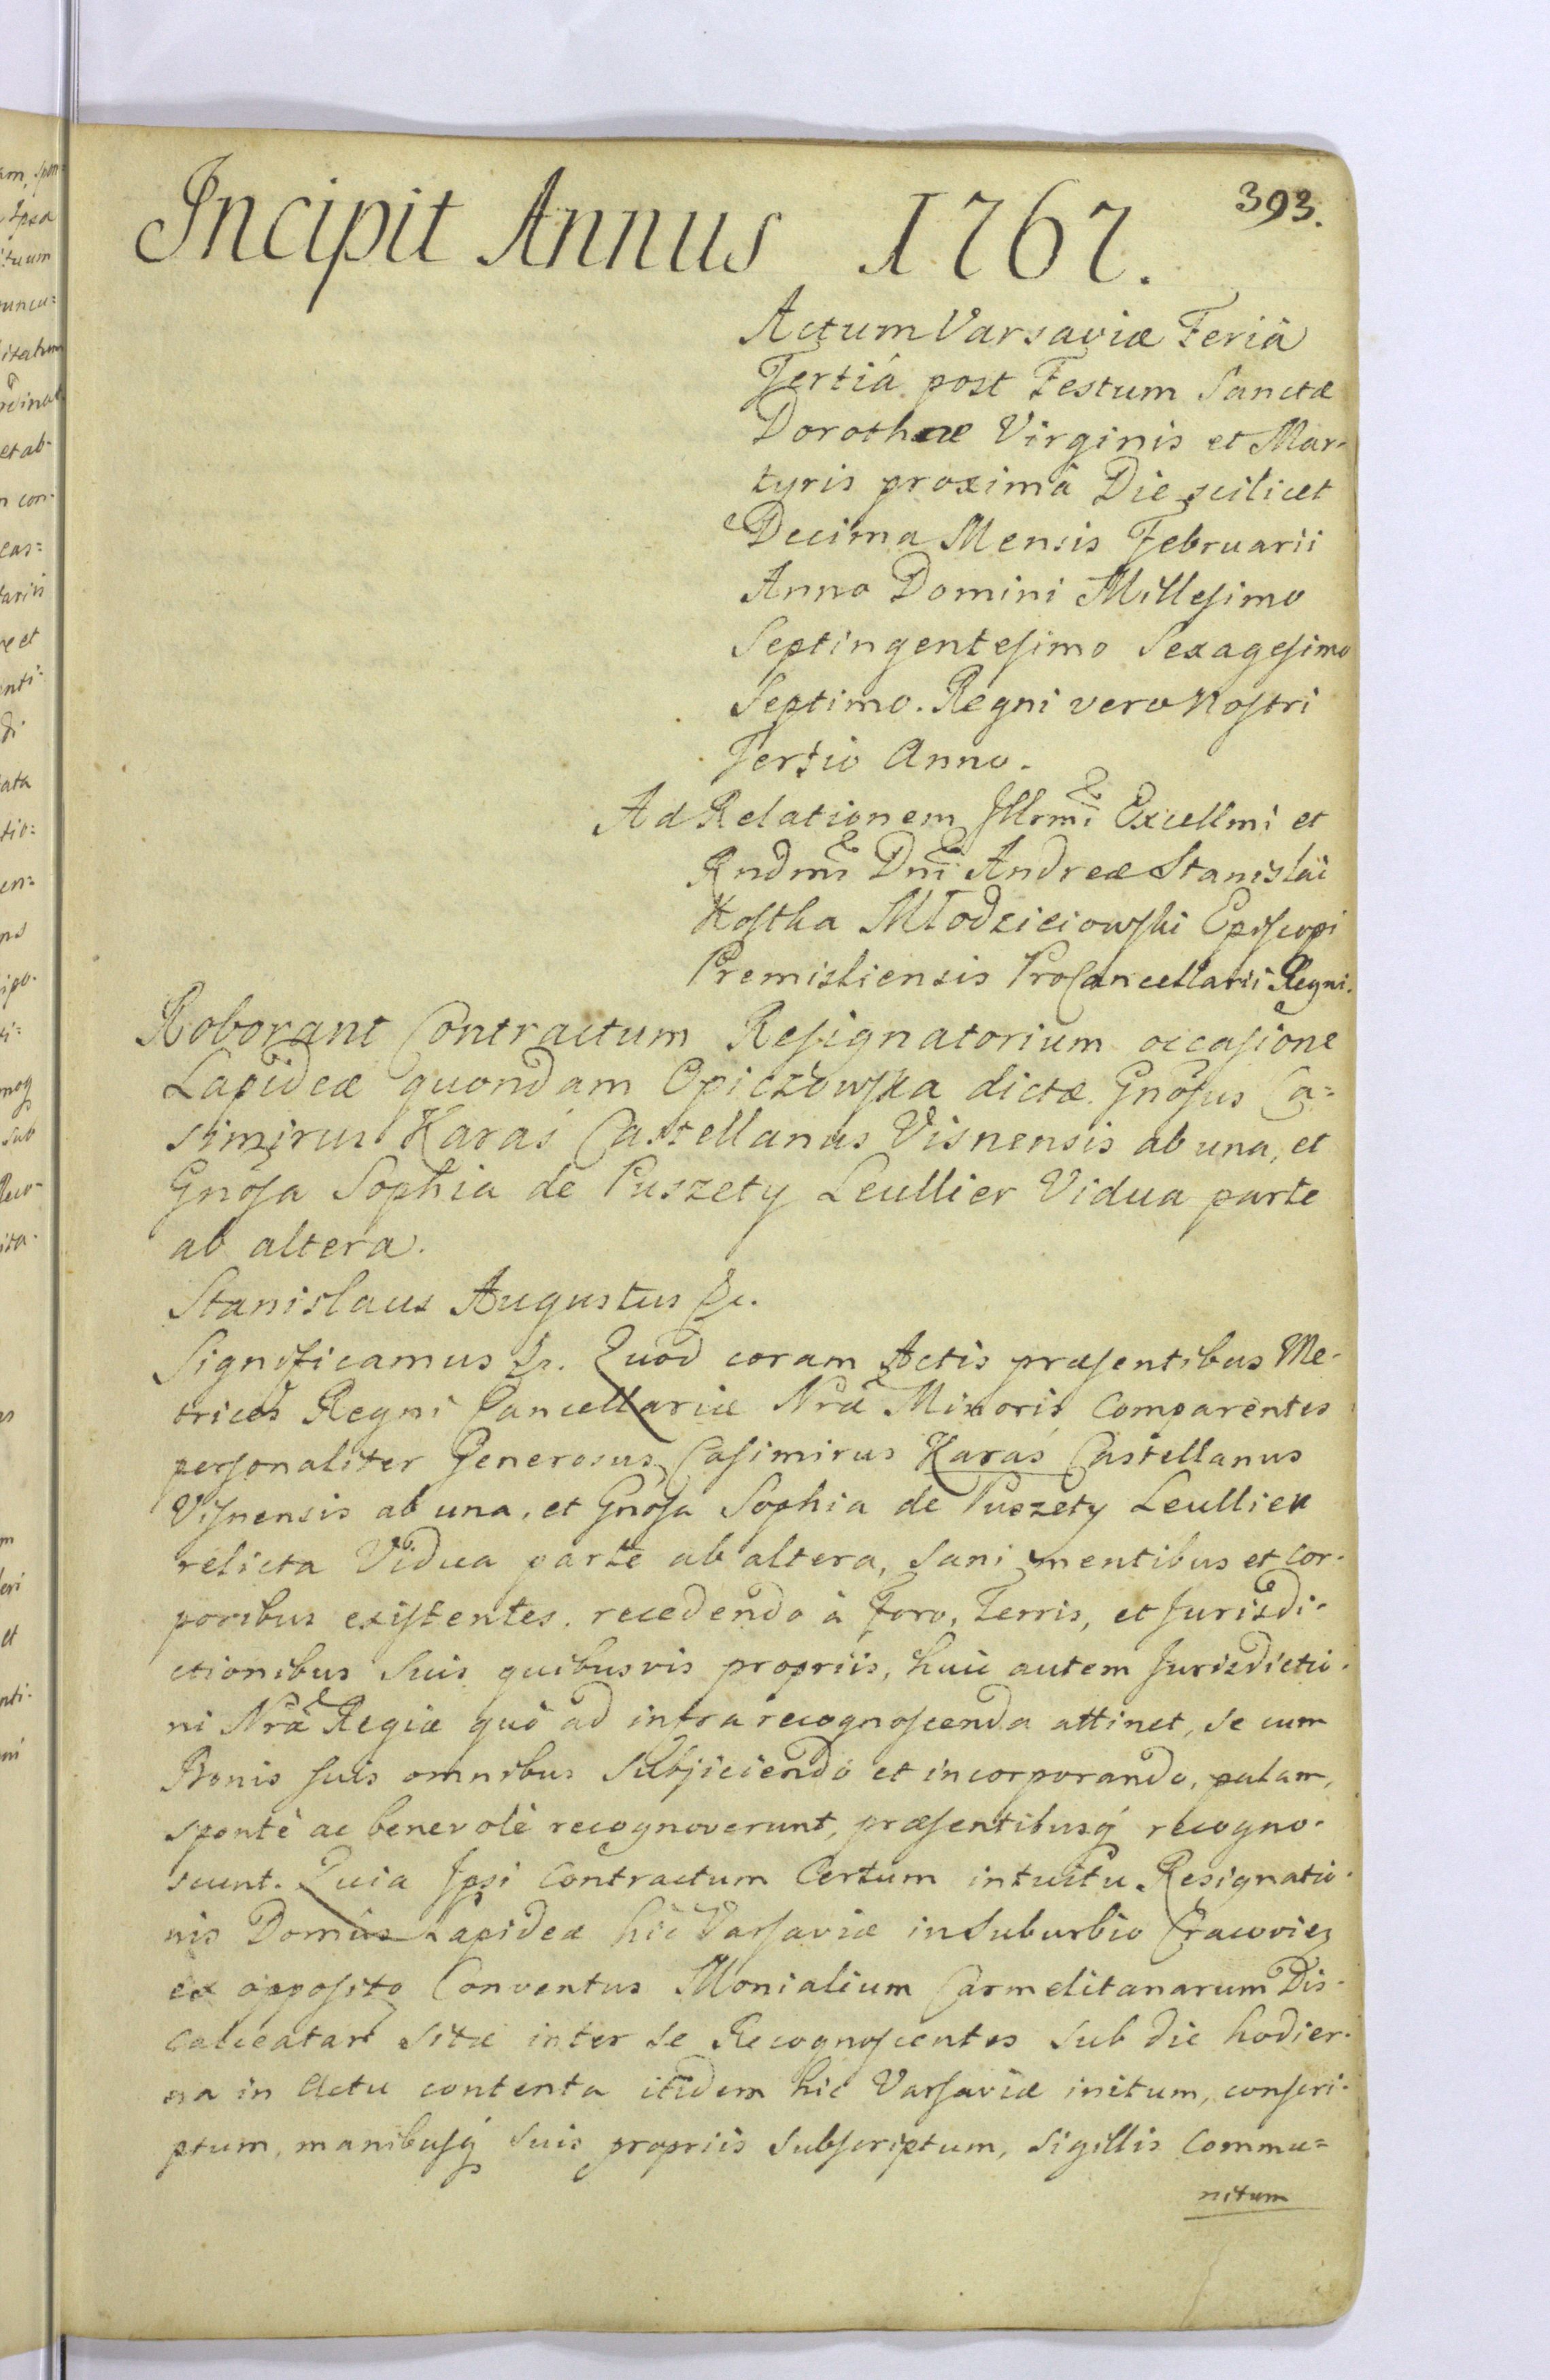 393.
Incipit Annus 1767.
Actum Varsaviæ Feriâ
Tertiâ post Festum Sanctæ
Dorothææ Virginis et Mar-
tyris proximâ Die scilicet
Decima Mensis Februarii
Anno Domini Millesimo
Septingentesimo Sexagesimo
Septimo. Regni vero Nostri
Tertio Anno.
Ad Relationem Illrmi Excellmi et
Rndmi Dni Andreæ Stanislai
Kostka Młodzieiowski Episcopi
Premisliensis ProCancellarii Regni.
Roborant Contractum Resignatorium occasione
Lapideæ quondam Opiczowska dictæ Gnosus Ca=
simirus Karaś Castellanus Visnensis ab una, et
Gnosa Sophia de Puszety Leullier Vidua parte
ab altera.
Stanislaus Augustus &c.
Significamus &c. Quod coram Actis præsentibus Me-
trices Regni Cancellariæ Nræ Minoris Comparentes
personaliter Generosus Casimirus Karaś Castellanus
Visnensis ab una, et Gnosa Sophia de Puszety Leullier
relicta Vidua parte ab altera, Sani mentibus et cor-
poribus existentes, recedendo à Foro, Terris, et Jurisdi-
ctionibus Suis quibusvis propriis, huic autem Jurisdictio-
ni Nræ Regiæ quò ad infra recognoscenda attinet, se cum
Bonis suis omnibus Subjiciendo et incorporando, palam,
spontè ac benevolè recognoverunt, præsentibusq́ recogno-
scunt. Quia Ipsi Contractum Certum intuitu Resignatio-
nis Domûs Lapideæ hic Varsaviæ in Suburbio Cracovien
ex opposito Conventus Monialium Carmelitanarum Dis-
calceatar Sitæ inter se Recognoscentes sub die hodier-
na in Actu contenta itidem hic Varsaviæ initum, conscri-
ptum, manibusq́ suis propriis Subscriptum, Sigillis Commu=
nitum